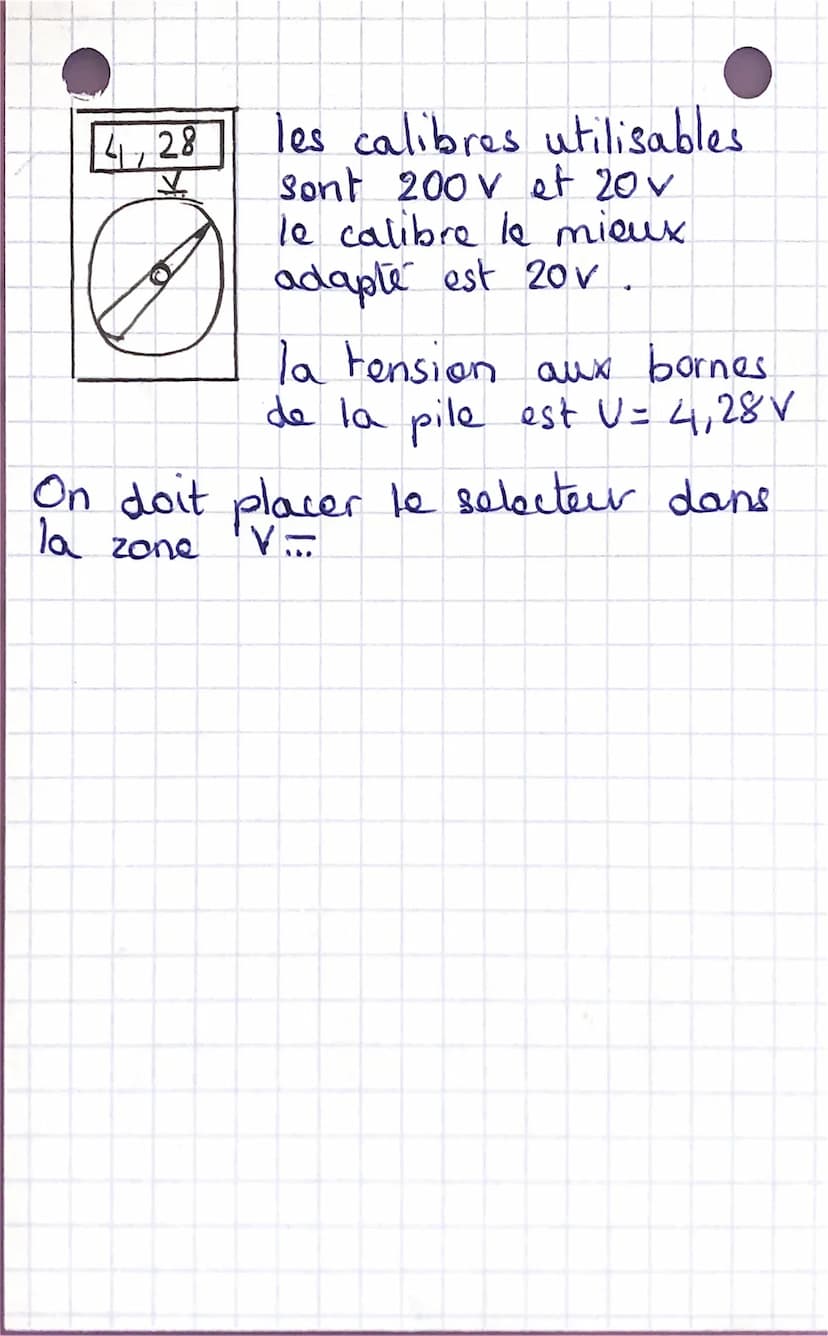 4,28
V
les calibres utilisables
sont 200V et 20V
le calibre le mieux
adapté est 20V .
la tension aux bornes
de la pile est U= 4,28V
On doit placer le selecteur dans
la zone V⎓